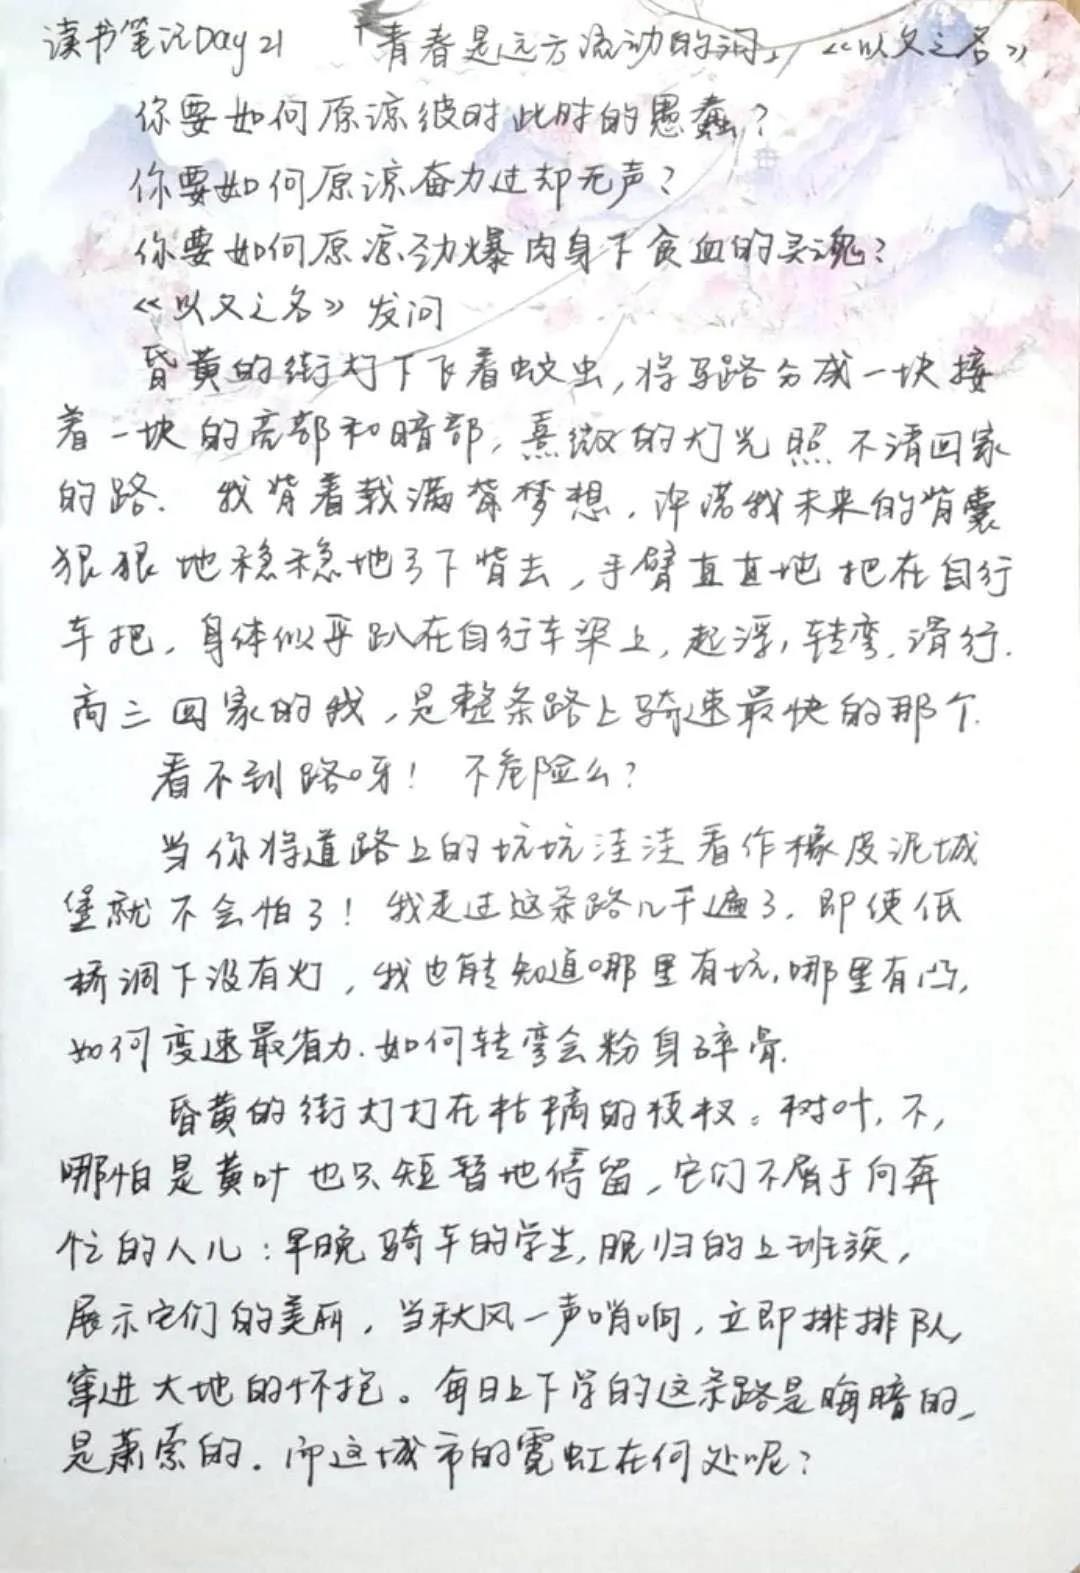 读书笔记Day 21 「青春是远方流动的河」《以父之名》
你要如何原谅彼时此时的愚蠢？
你要如何原谅奋力过却无声？
你要如何原谅劲爆肉身下贪血的灵魂？
《以父之名》发问
昏黄的街灯下飞着蚊虫，将马路分成一块接
着一块的亮部和暗部，熹微的灯光照不清回家
的路。我背着载满背梦想，许诺我未来的背囊
狠狠地稳稳地弓下背去，手臂直直地把在自行
车把，身体似乎趴在自行车梁上，起浮，转弯，滑行.
高三回家的我，是整条路上骑速最快的那个.
看不到路呀！不危险么？
当你将道路上的坑坑洼洼看作橡皮泥城
堡就不会怕了！我走过这条路几千遍了，即使低
桥洞下没有灯，我也能知道哪里有坑，哪里有凸，
如何变速最省力.如何转弯会粉身碎骨.
昏黄的街灯打在枯槁的枝杈。树叶，不，
哪怕是黄叶也只短暂地停留，它们不屑于向奔
忙的人儿：早晚骑车的学生，晚归的上班族，
展示它们的美丽，当秋风一声哨响，立即排排队，
窜进大地的怀抱。每日上下学的这条路是晦暗的，
是萧索的。而这城市的霓虹在何处呢？